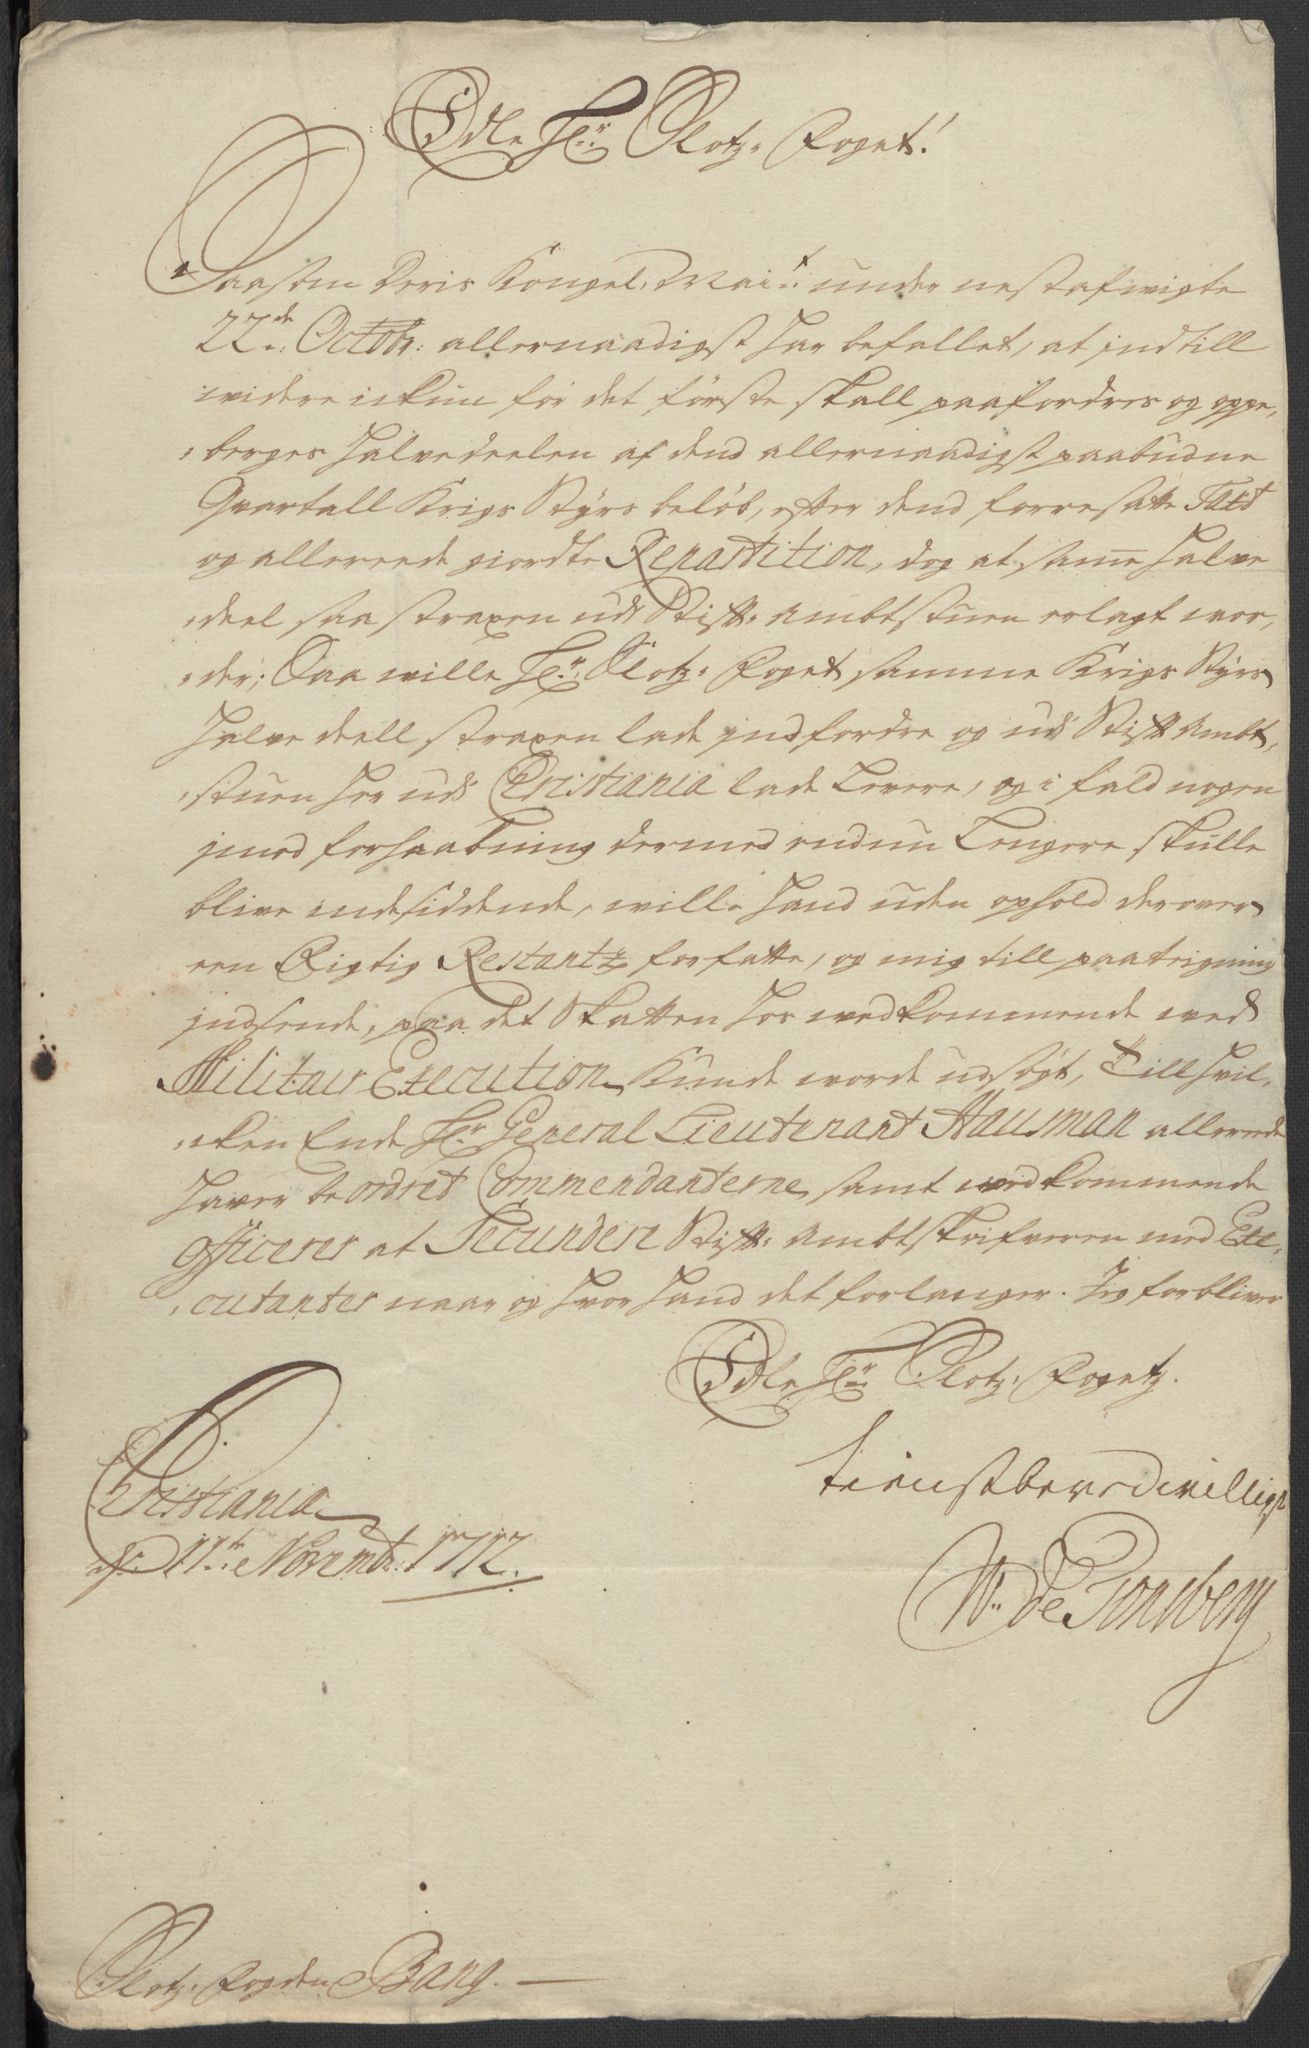 Edle Hr: Slotz-Foget!
Saasom Deris Kongel. Mai:t under nestafvigte
22de: Octobr: allernaadigst har befallet, at indtill
videre ickun for det første skall paafordres og oppe,
berges halvedeelen af dend allernaadigst paabudne
Qvartall Krigs Styrs beløb, efter dend forresatte Taxt
og allereede giordte Repartition, dog at same halve
deel saa straxen udi Stift-Ambtstuen erlagt vor,
der; Saa wille Hr: Slotz-Foget samme Krigs Styrs
halve deell straxen lade indfordre og udi Stift Ambt,
stuen her udi Christiania lade Levere, og i fald nogen
imod forhaabning dermed endnu Lengere skulle
blive indesiddende, wille hand uden ophold derover
een Rigtig Restantz forfatte, og mig till paateigning
indsende, paa det Skatten hos vedkommende ved
Militair Execution kunde vorde udsøgt, Till hvil,
cken Ende Hr: General Lieutenant Hausman allerede
haver beordret Commendanterne, samt vedkommende
Officerer at Secundere Stift-Ambtskrifveren med Exe,
cutanter naar og hvor hand det forlanger. Jeg forbliver
Edle Hr: Slotz-Fogetz.
tienstberedvilligst
Christiania
d: 11te Novembr: 1712.
W: de Tonsberg
Slotz-Fogden Bang.